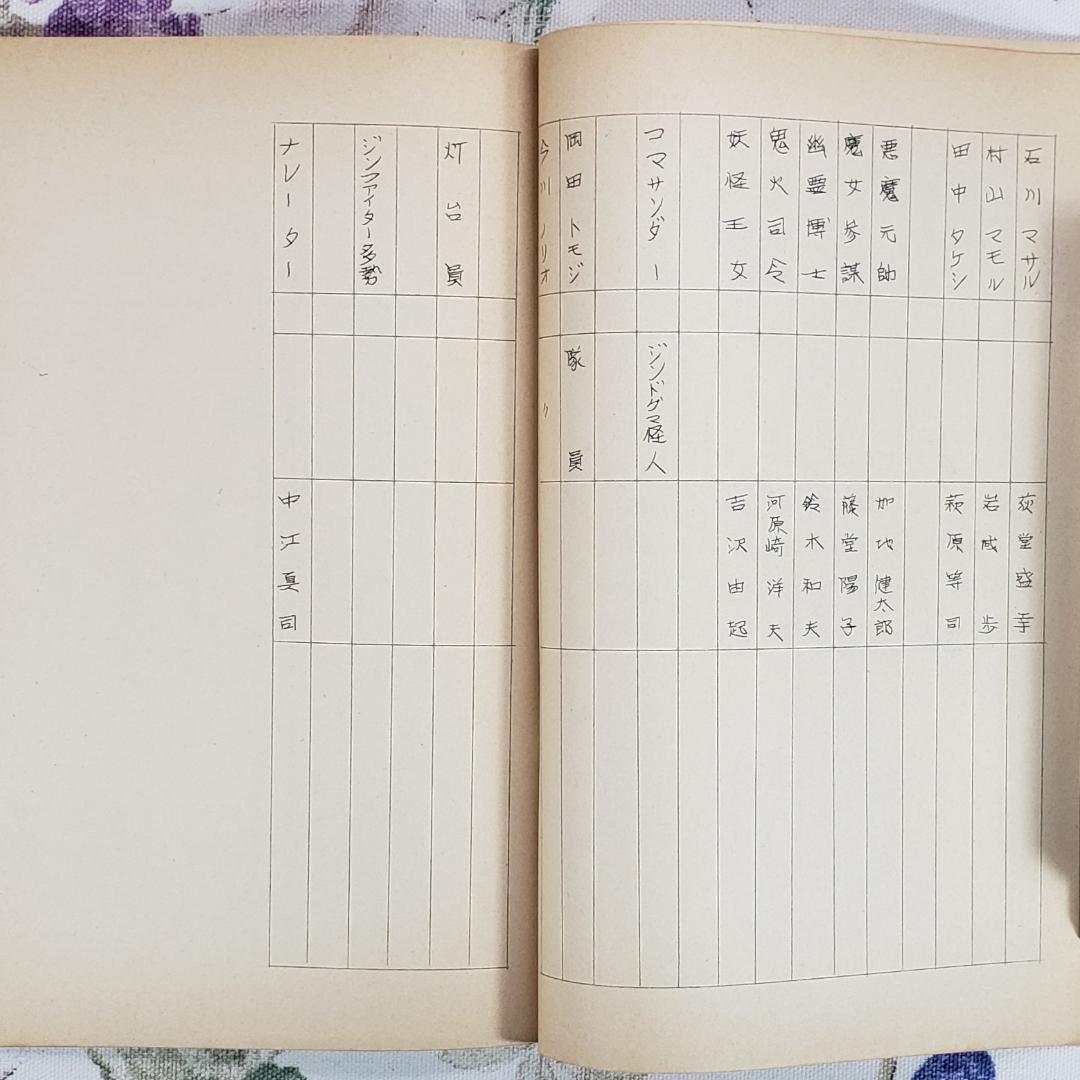 石川マサル 荻堂盛幸
村山マモル 岩城歩
田中タケシ 萩原等司
悪魔元帥 加地健太郎
魔女参謀 藤堂陽子
幽霊博士 鈴木和夫
鬼火司令 河原崎洋夫
妖怪王女 吉沢由起
コマサンダー ジンドグマ怪人
岡田トモジ 隊員
今川ノリオ 〃
灯台員
ジンファイター多勢
ナレーター 中江真司